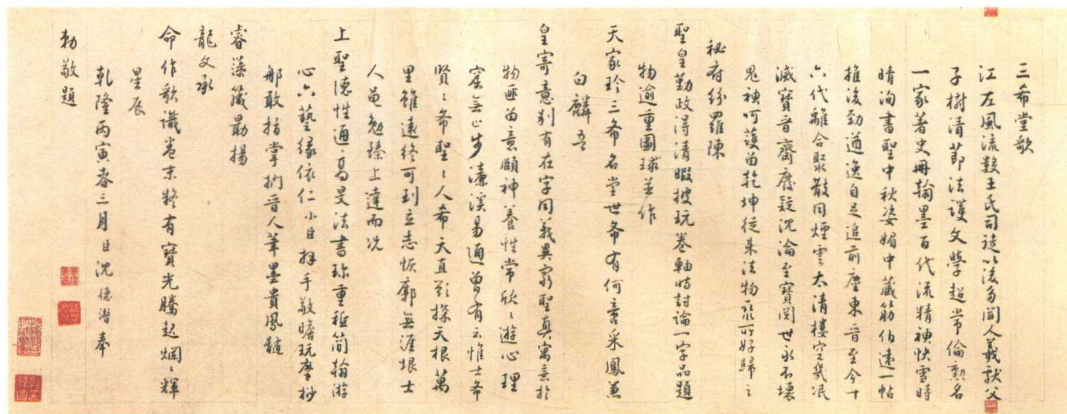 三希堂歌
江左風流數王氏司徒以後多聞人羲獻父
子樹清節法護文學超常倫勳名
一家著史冊翰墨百代流精神快雪時
晴洵書聖中秋姿媚中藏筋伯遠一帖
推後勁遒逸自足追前塵東晉至今十
六代離合聚散同煙雲太清樓空幾泯
滅寶晉齋廢疑沉淪至寶閱世永不壞
鬼神呵護由乾坤從來法物聚所好歸之
秘府紛羅陳
聖皇勤政得清暇披玩卷軸時討論一字品題
物逾重圖球並作
天家珍三希名堂世希有何意采鳳兼
白麟吾
皇寄意別有在字同義異窮聖真寓意於
物匪留意頤神養性常欣欣遊心理
窟無止步濂溪易通曾有云惟士希
賢賢希聖聖人希天直欲探天根萬
里雖遠終可到立志恢廓無涯垠士
人黽勉臻上達而況
上聖德性通高旻法書珍重秪簡翰游
心六藝緣依仁小臣拜手敬瞻玩摩抄
那敢指掌捫晉人筆墨貴風髓
睿藻箴勗揚
龍文承
命作歌識卷末將有寶光騰起烱烱輝
星辰
乾隆丙寅春三月臣沈德潛奉
勑敬題